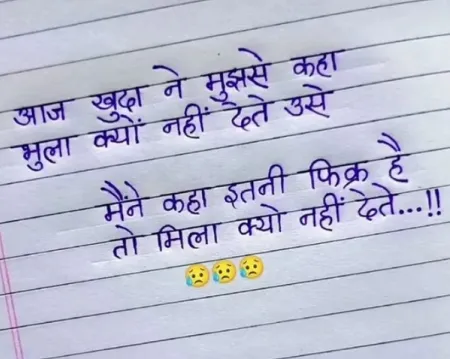 आज खुदा ने मुझसे कहा
भुला क्यों नहीं देते उसे
मैंने कहा इतनी फिक्र है
तो मिला क्यो नहीं देते...!!
😥😥😥